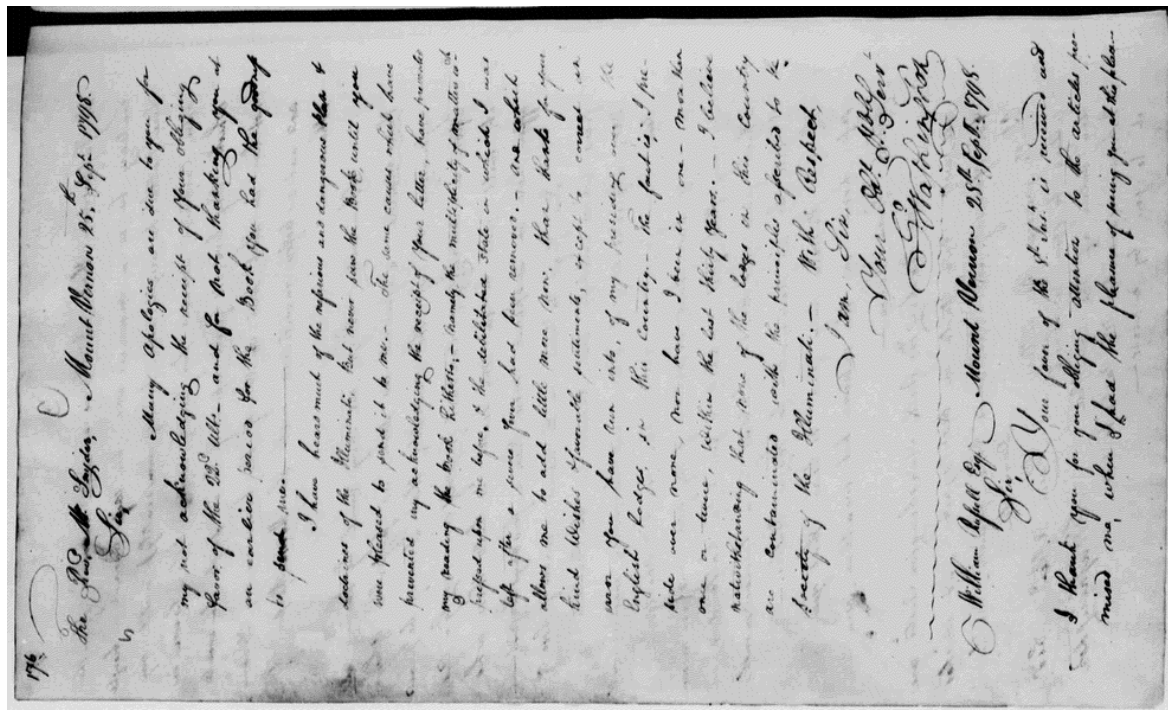 176
The Revd Mr Snyder Mount Vernon 25th Sept. 1798.
Sir,
Many apologies are due to you for
my not acknowledging the receipt of your obliging
favor of the 22d Ulto and for not thanking you at
an earlier period for the Book you had the goodness
to send me.
I have heard much of the nefarious and dangerous plan &
doctrines of the Illuminati, but never saw the Book until you
were pleased to send it to me. The same causes which have
prevented my acknowledging the receipt of your letter, have prevented
my reading the book hitherto,— namely the multiplicity of matters wch
pressed upon me before, & the debilitated state in which I was
left after a severe fever had been removed.— and which
allows me to add little more now, than thanks for your
kind wishes & favourable sentiments, except to correct an
error you have run into, of my presiding over the
English lodges in this Country.— The fact is, I pre-
side over none, nor have I been in one — more than
once or twice, within the last thirty years.— I believe
notwithstanding that none of the Lodges in this Country
are contaminated with the principles ascribed to the
Society of the Illuminati.— With Respect
I am, Sir,
Your Obt. Hble Servt
Go Washington
William Russell Esqr Mount Vernon 25th Septr 1798.
Sir,
Your favor of the Inst. is received and
I thank you for your obliging attention to the articles pro-
mised me, when I had the pleasure of seeing you at this place.